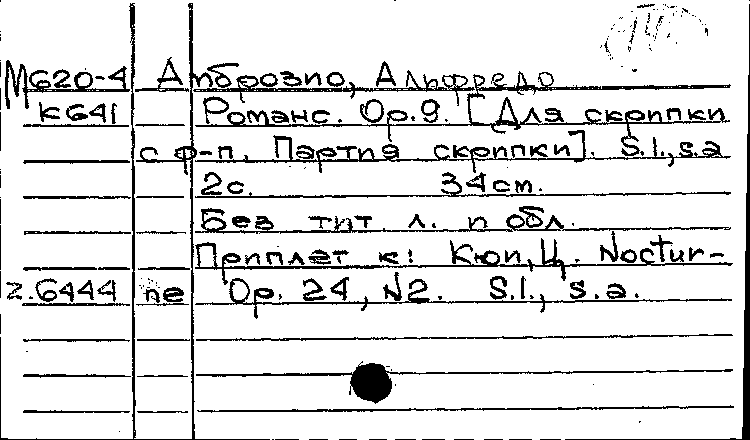 М620-4 Амброзио, Альфредо
К641 Романс. Ор.9. [Для скрипки
с ф-п. Партия скрипки]. S.l., s.a
2с. 34см.
Без тит л. и обл.
Приплет к: Кюи, Ц. Noctur-
2.6444 ne Op. 24, N2. S.l., s.a.